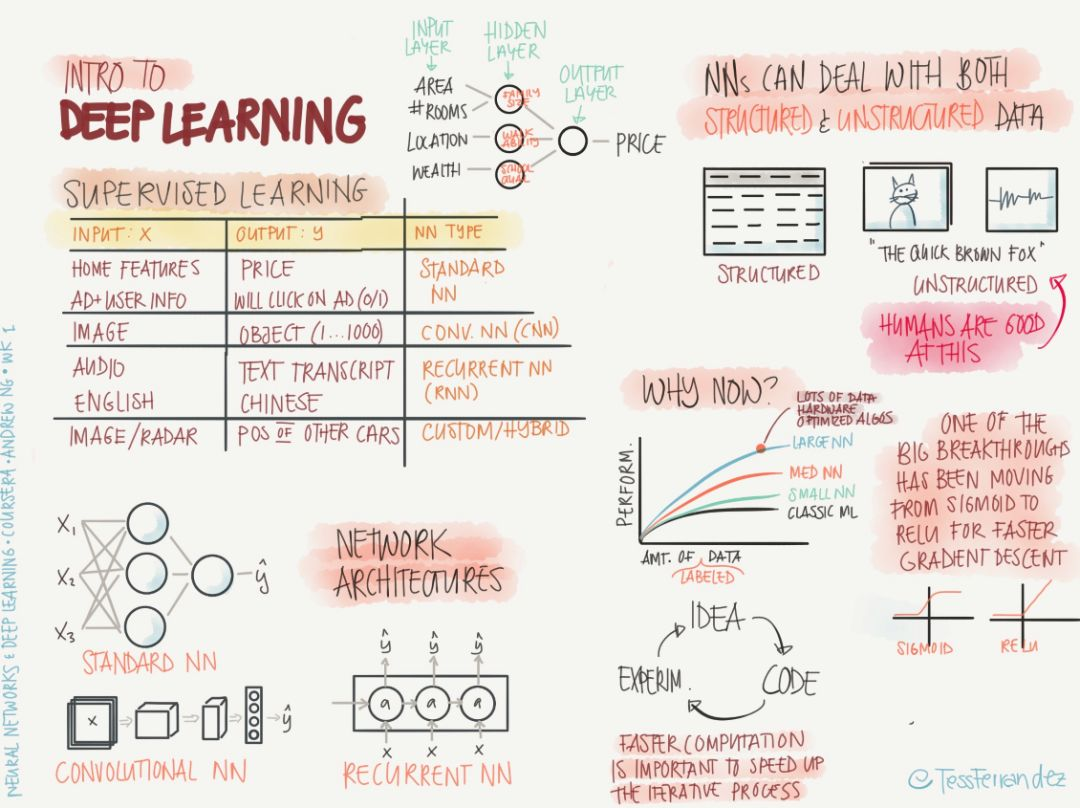 INTRO TO
DEEP LEARNING
INPUT
LAYER
HIDDEN
LAYER
OUTPUT
LAYER
AREA
#ROOMS
LOCATION
WEALTH
FAMILY
SIZE
WALK
ABILITY
SCHOOL
QUAL
PRICE
SUPERVISED LEARNING
INPUT: X OUTPUT: y NN TYPE
HOME FEATURES PRICE STANDARD
AD+USER INFO WILL CLICK ON AD (0/1) NN
IMAGE OBJECT (1...1000) CONV. NN (CNN)
AUDIO TEXT TRANSCRIPT RECURRENT NN
ENGLISH CHINESE (RNN)
IMAGE/RADAR POS OF OTHER CARS CUSTOM/HYBRID
NNs CAN DEAL WITH BOTH
STRUCTURED & UNSTRUCTURED DATA
STRUCTURED
"THE QUICK BROWN FOX"
UNSTRUCTURED
HUMANS ARE GOOD
AT THIS
WHY NOW?
LOTS OF DATA
HARDWARE
OPTIMIZED ALGOS
LARGE NN
MED NN
SMALL NN
CLASSIC ML
PERFORM.
AMT. OF DATA
LABELED
ONE OF THE
BIG BREAKTHROUGHS
HAS BEEN MOVING
FROM SIGMOID TO
RELU FOR FASTER
GRADIENT DESCENT
SIGMOID
RELU
X1
X2
X3
ŷ
STANDARD NN
NETWORK
ARCHITECTURES
x
ŷ
CONVOLUTIONAL NN
ŷ ŷ ŷ
a a a
x x x
RECURRENT NN
IDEA
CODE
EXPERIM.
FASTER COMPUTATION
IS IMPORTANT TO SPEED UP
THE ITERATIVE PROCESS
NEURAL NETWORKS & DEEP LEARNING • COURSERA • ANDREW NG • WK 1
@TessFerrandez